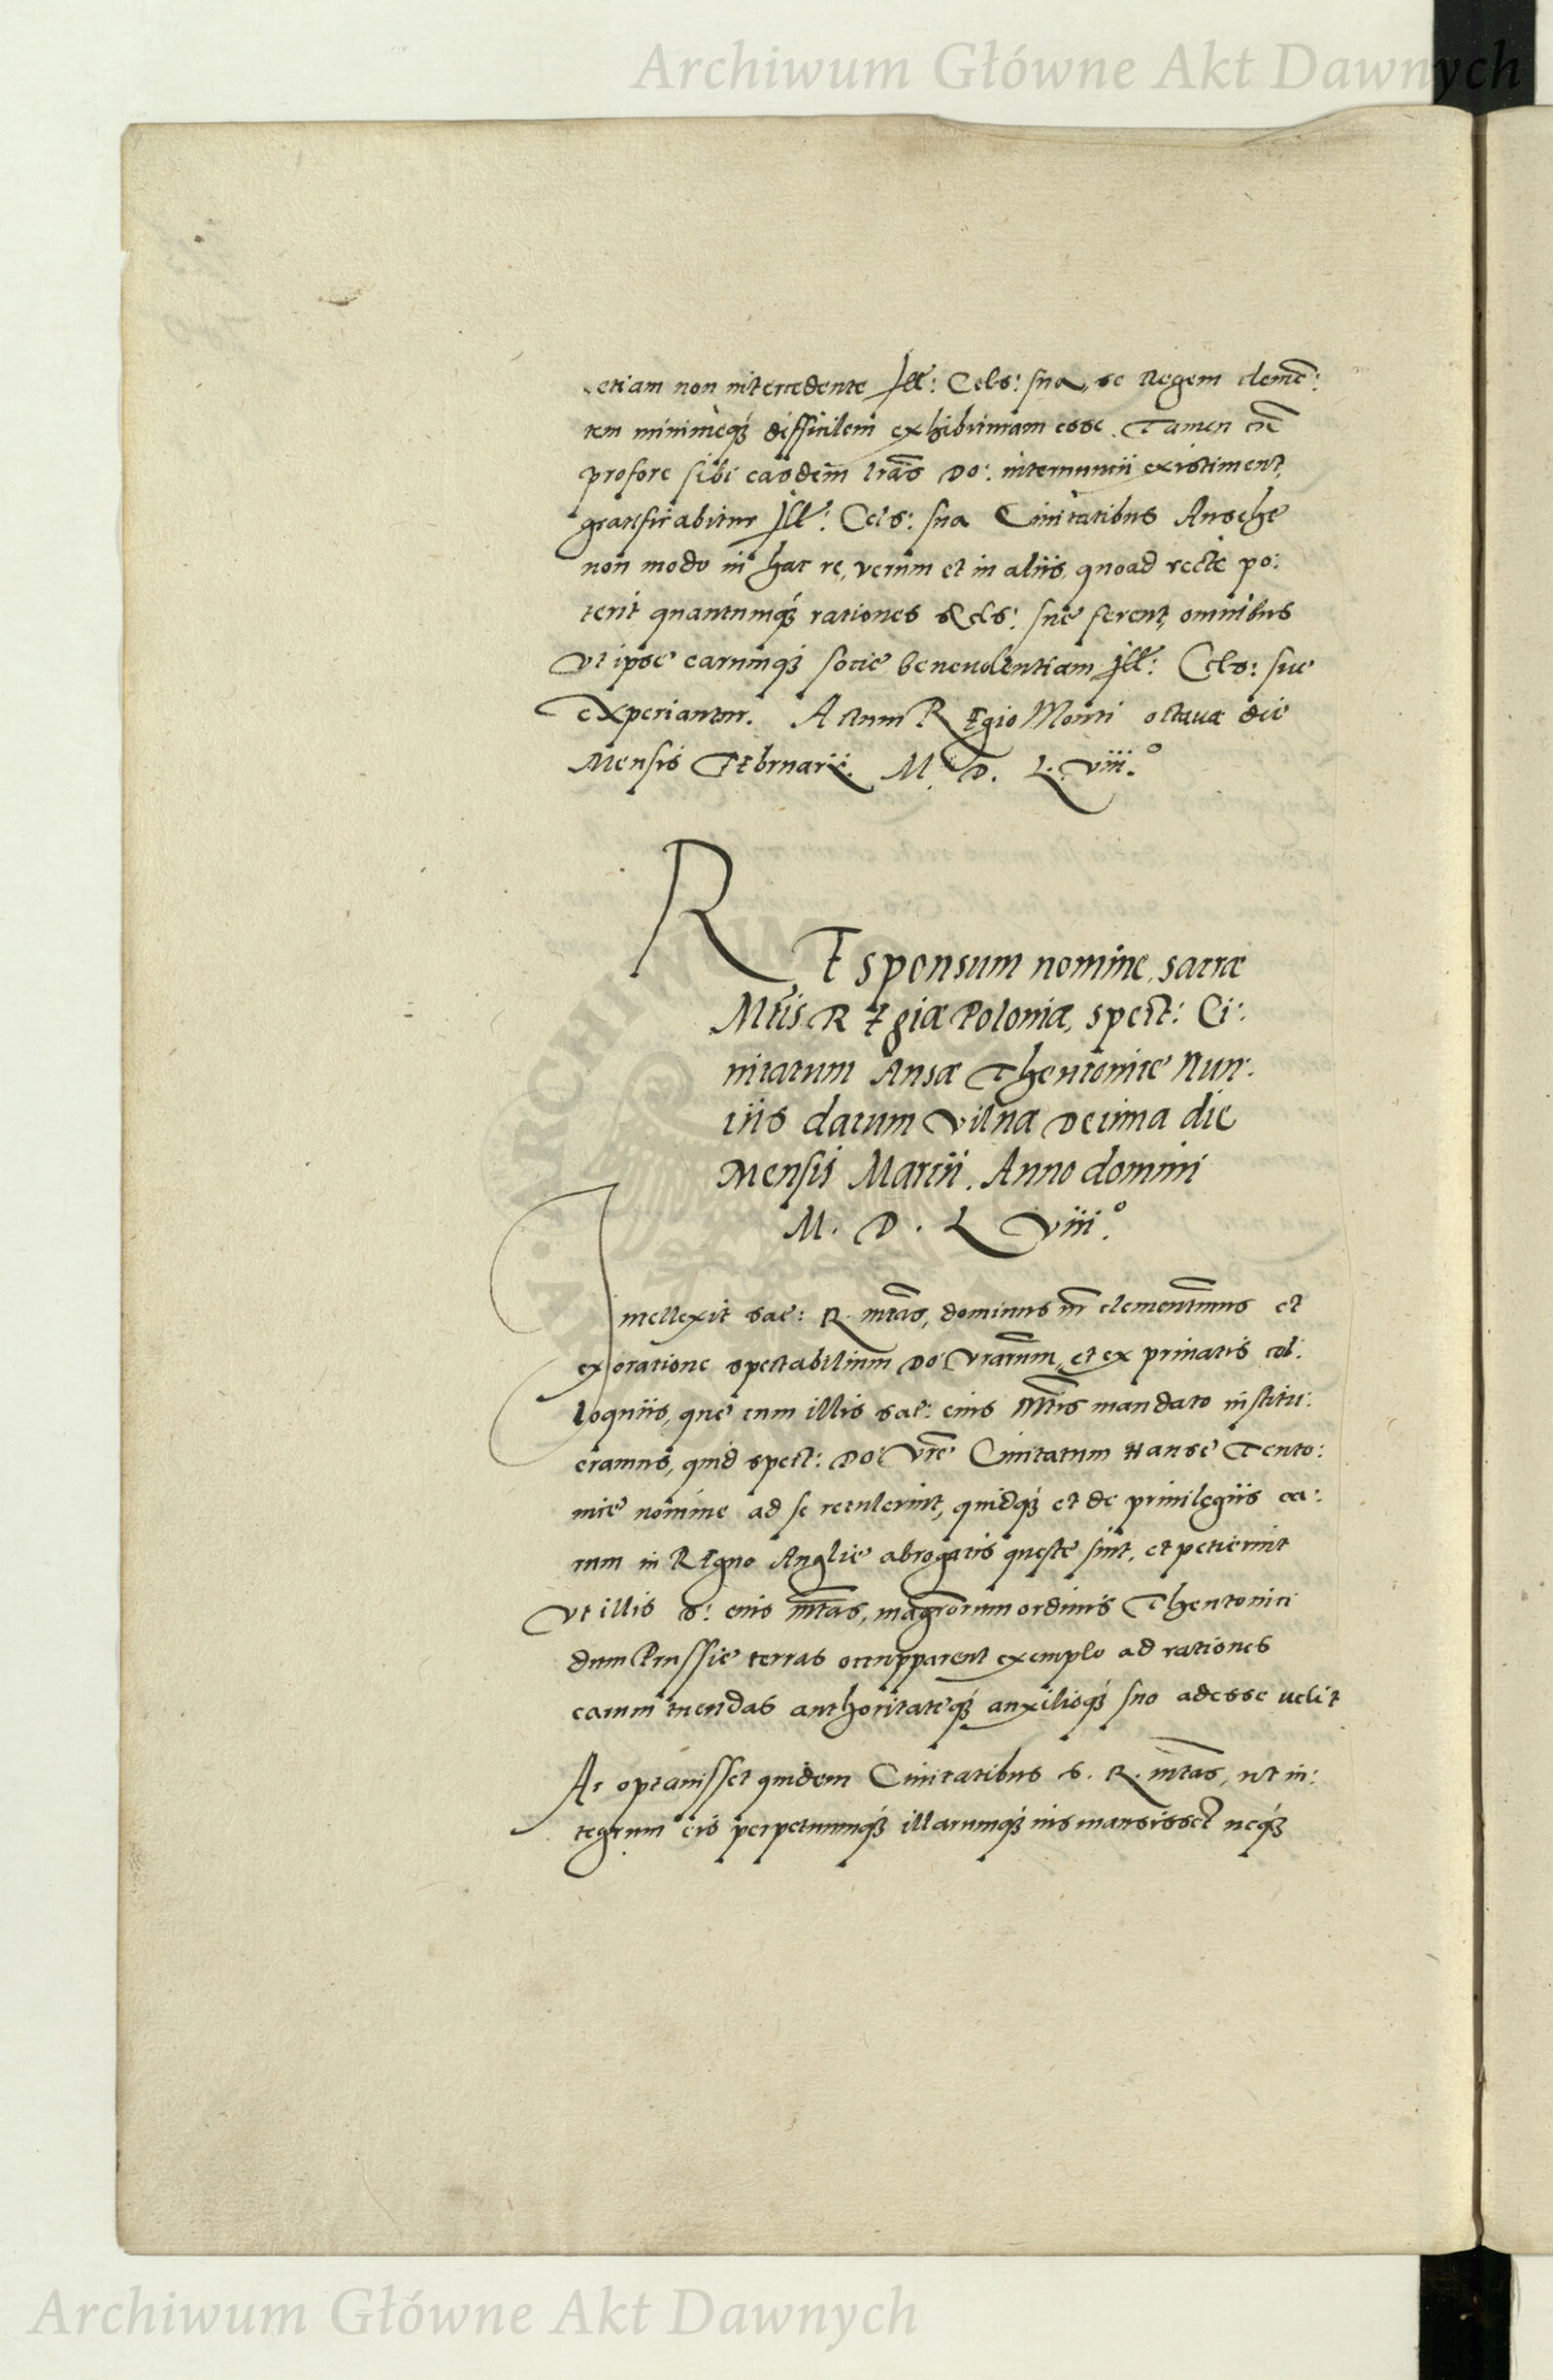 Archiwum Główne Akt Dawnych
etiam non intercedente Ill: Cels: sua, se Regem clemē:
tem minimeq̃ difficilem exhibituram esse. Tamen cū
profore sibi easdem lr̃as Do: internuncii existiment,
gratificabitur Ill: Cels: sua Ciuitatibus Ansehe
non modo in hac re, verum et in aliis, quoad recte po:
terit quantumq̃ rationes Cels: sue ferent, omnibus
vt ipse earumq̃ socie beneuolentiam Ill: Cels: sue
experiantur. Actum Regio Monti octaua die
Mensis Februarii. M. D. L. viii.º
Responsum nomine, sacræ
Mtis Regiæ Poloniæ, spect: Ci:
uitatum Ansæ Theutonice Nun:
ciis datum Vilnæ Decima die
Mensis Marcii. Anno domini
M. D. L viii.º
Intellexit sac: R. mtas, dominus nr̃ clementimus et
ex oratione spectabilium Do: Vrarum, et ex priuatis col:
loquiis, que cum illis sac: eius Mtis mandato institu:
eramus, quid spect: Do: Vrẽ Ciuitatum Hanse Teuto:
nice nomine ad se retulerint, quidq̃ et de priuilegiis ea:
rum in Regno Anglie abrogatis queste sint, et petierint
vt illis S: eius mtas, magrorum ordinis Theutonici
dum Prussie terras occupparent exemplo ad rationes
earum tuendas authoritateq̃ auxilioq̃ suo adesse uelit
Ac optauisset quidem Ciuitatibus S. R. mtas, ut in:
tegrum eis perpetuumq̃ illarumq̃ ius mansisset neq̃
Archiwum Główne Akt Dawnych